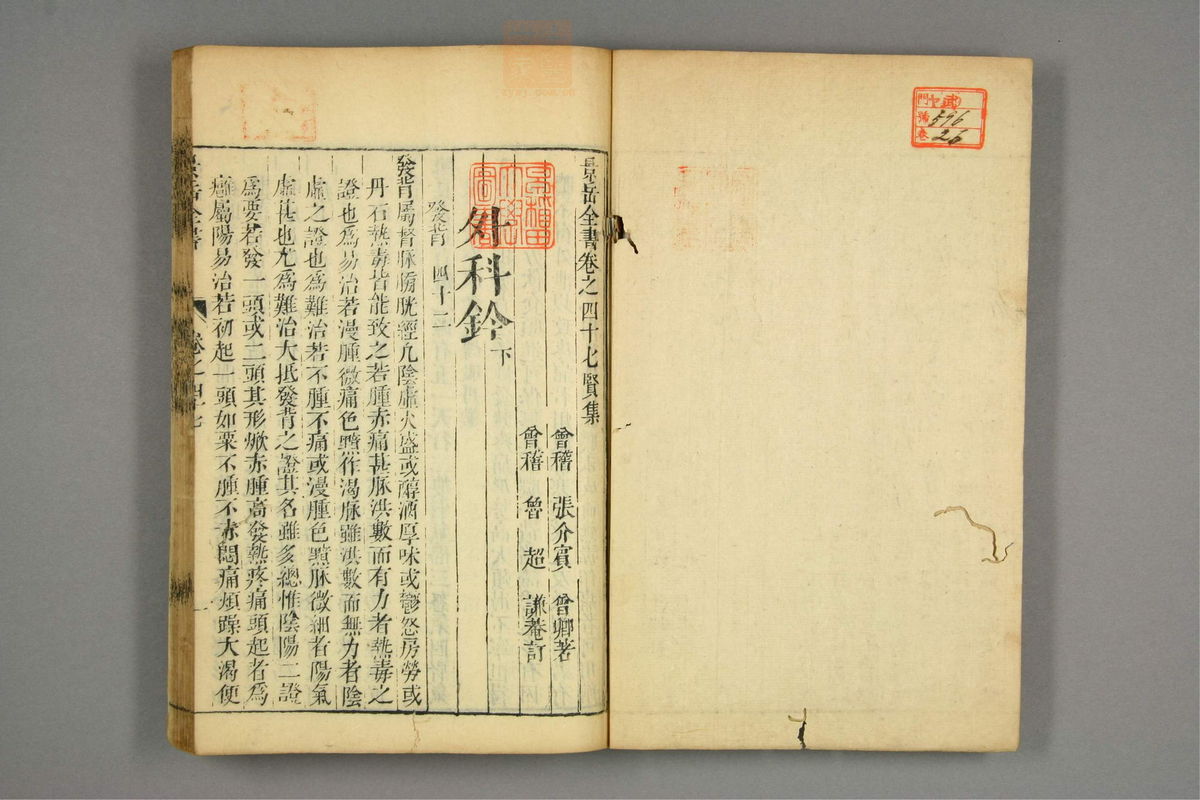 武
門
號 596
卷 26
景岳全書卷之四十七賢集
會稽 張介賓 會卿著
會稽 魯 超 謙菴訂
外科鈐下
發背 四十二
發背屬督脉膀胱經凡陰虛火盛或醇酒厚味或鬱怒房勞或
丹石熱毒皆能致之若腫赤痛甚脉洪數而有力者熱毒之
證也爲易治若漫腫微痛色黯作渴脉雖洪數而無力者陰
虛之證也爲難治若不腫不痛或漫腫色黯脉微細者陽氣
虛甚也尤爲難治大抵發背之證其名雖多總惟陰陽二證
爲要若發一頭或二頭其形焮赤腫高發熱疼痛頭起者爲
癰屬陽易治若初起一頭如粟不腫不赤悶痛煩躁大渴便
景岳全書
卷之四十七